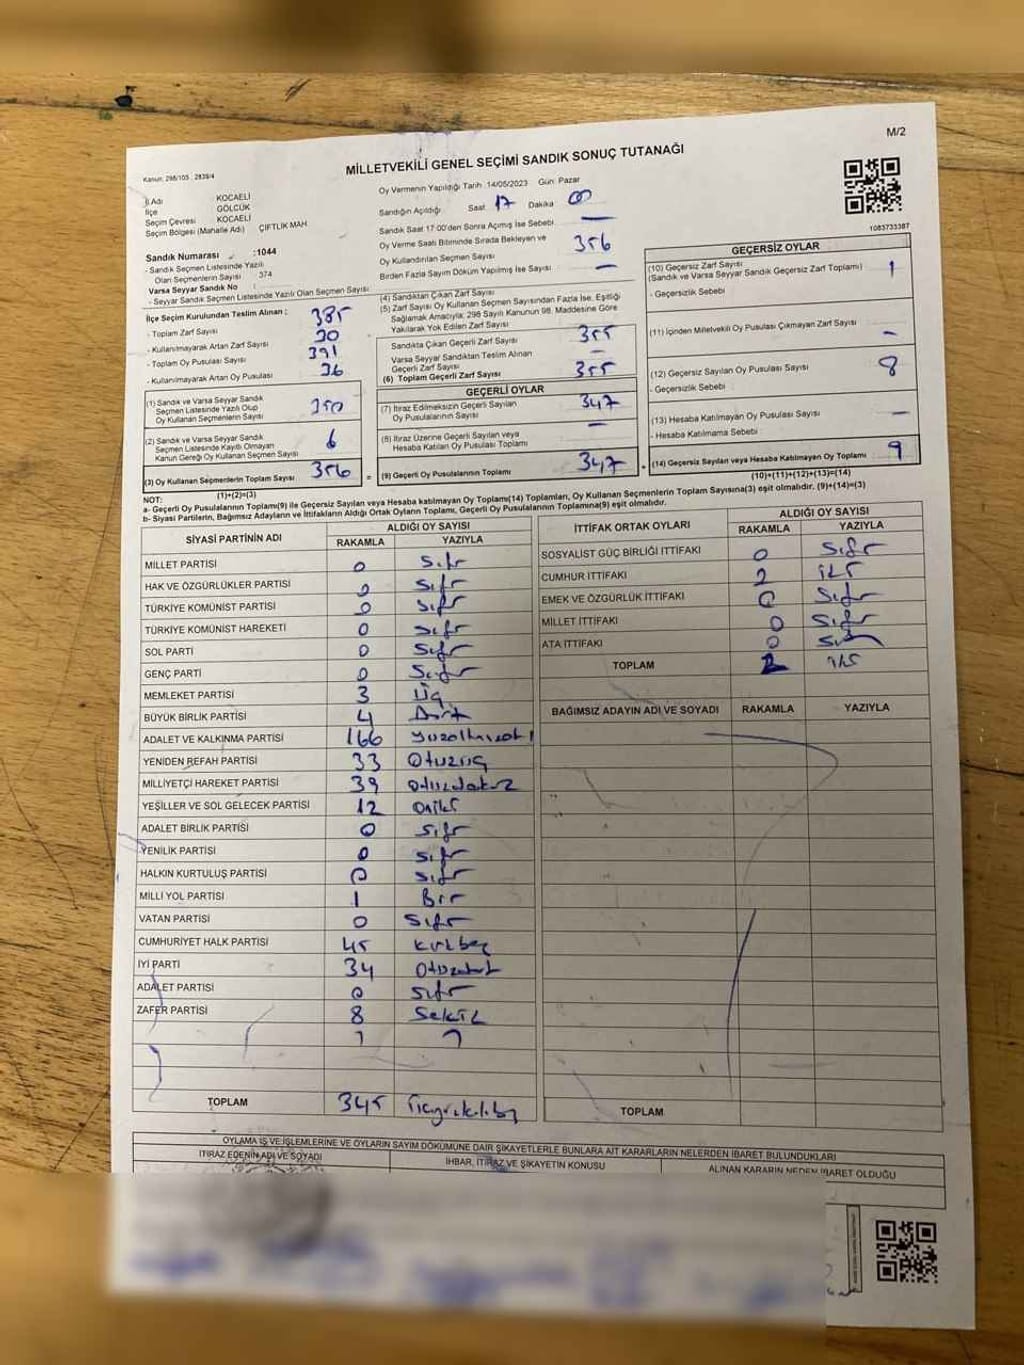 M/2
MİLLETVEKİLİ GENEL SEÇİMİ SANDIK SONUÇ TUTANAĞI
Kanun: 298/105 , 2839/4
İl Adı KOCAELİ
İlçe GÖLCÜK
Seçim Çevresi KOCAELİ
Seçim Bölgesi (Mahalle Adı) ÇİFTLİK MAH.
Sandık Numarası :1044
- Sandık Seçmen Listesinde Yazılı
Olan Seçmenlerin Sayısı 374
Varsa Seyyar Sandık No
- Seyyar Sandık Seçmen Listesinde Yazılı Olan Seçmen Sayısı
Oy Vermenin Yapıldığı Tarih :14/05/2023 Gün: Pazar
Sandığın Açıldığı Saat 17 Dakika 00
Sandık Saat 17:00'den Sonra Açımış İse Sebebi —
Oy Verme Saati Bitiminde Sırada Bekleyen ve
Oy Kullandırılan Seçmen Sayısı 356
Birden Fazla Sayım Döküm Yapılmış İse Sayısı —
1083733387
İlçe Seçim Kurulundan Teslim Alınan :
- Toplam Zarf Sayısı 385
- Kullanılmayarak Artan Zarf Sayısı 30
- Toplam Oy Pusulası Sayısı 391
- Kullanılmayarak Artan Oy Pusulası 36
(1) Sandık ve Varsa Seyyar Sandık
Seçmen Listesinde Yazılı Olup
Oy Kullanan Seçmenlerin Sayısı 350
(2) Sandık ve Varsa Seyyar Sandık
Seçmen Listesinde Kayıtlı Olmayan
Kanun Gereği Oy Kullanan Seçmen Sayısı 6
(3) Oy Kullanan Seçmenlerin Toplam Sayısı 356
(1)+(2)=(3)
(4) Sandıktan Çıkan Zarf Sayısı
(5) Zarf Sayısı Oy Kullanan Seçmen Sayısından Fazla İse, Eşitliği
Sağlamak Amacıyla; 298 Sayılı Kanunun 98. Maddesine Göre
Yakılarak Yok Edilen Zarf Sayısı
Sandıkta Çıkan Geçerli Zarf Sayısı 355
Varsa Seyyar Sandıktan Teslim Alınan
Geçerli Zarf Sayısı —
(6) Toplam Geçerli Zarf Sayısı 355
GEÇERLİ OYLAR
(7) İtiraz Edilmeksizin Geçerli Sayılan
Oy Pusulalarının Sayısı 347
(8) İtiraz Üzerine Geçerli Sayılan veya
Hesaba Katılan Oy Pusulası Toplamı —
= (9) Geçerli Oy Pusulalarının Toplamı 347
GEÇERSİZ OYLAR
(10) Geçersiz Zarf Sayısı
(Sandık ve Varsa Seyyar Sandık Geçersiz Zarf Toplamı) 1
- Geçersizlik Sebebi
(11) İçinden Milletvekili Oy Pusulası Çıkmayan Zarf Sayısı —
(12) Geçersiz Sayılan Oy Pusulası Sayısı 8
- Geçersizlik Sebebi
(13) Hesaba Katılmayan Oy Pusulası Sayısı —
- Hesaba Katılmama Sebebi
+ (14) Geçersiz Sayılan veya Hesaba Katılmayan Oy Toplamı 9
(10)+(11)+(12)+(13)=(14)
NOT:
a- Geçerli Oy Pusulalarının Toplamı(9) ile Geçersiz Sayılan veya Hesaba katılmayan Oy Toplamı(14) Toplamları, Oy Kullanan Seçmenlerin Toplam Sayısına(3) eşit olmalıdır. (9)+(14)=(3)
b- Siyasi Partilerin, Bağımsız Adayların ve İttifakların Aldığı Ortak Oyların Toplamı, Geçerli Oy Pusulalarının Toplamına(9) eşit olmalıdır.
SİYASİ PARTİNİN ADI ALDIĞI OY SAYISI
RAKAMLA YAZIYLA
MİLLET PARTİSİ 0 Sıfır
HAK VE ÖZGÜRLÜKLER PARTİSİ 0 Sıfır
TÜRKİYE KOMÜNİST PARTİSİ 0 Sıfır
TÜRKİYE KOMÜNİST HAREKETİ 0 Sıfır
SOL PARTİ 0 Sıfır
GENÇ PARTİ 0 Sıfır
MEMLEKET PARTİSİ 3 Üç
BÜYÜK BİRLİK PARTİSİ 4 Dört
ADALET VE KALKINMA PARTİSİ 166 yüzaltmışaltı
YENİDEN REFAH PARTİSİ 33 Otuzüç
MİLLİYETÇİ HAREKET PARTİSİ 39 otuzdokuz
YEŞİLLER VE SOL GELECEK PARTİSİ 12 oniki
ADALET BİRLİK PARTİSİ 0 Sıfır
YENİLİK PARTİSİ 0 Sıfır
HALKIN KURTULUŞ PARTİSİ 0 Sıfır
MİLLİ YOL PARTİSİ 1 Bir
VATAN PARTİSİ 0 Sıfır
CUMHURİYET HALK PARTİSİ 45 kırkbeş
İYİ PARTİ 34 Otuzdört
ADALET PARTİSİ 0 Sıfır
ZAFER PARTİSİ 8 Sekiz
TOPLAM 345
İTTİFAK ORTAK OYLARI ALDIĞI OY SAYISI
RAKAMLA YAZIYLA
SOSYALİST GÜÇ BİRLİĞİ İTTİFAKI 0 Sıfır
CUMHUR İTTİFAKI 2 iki
EMEK VE ÖZGÜRLÜK İTTİFAKI 0 Sıfır
MİLLET İTTİFAKI 0 Sıfır
ATA İTTİFAKI 0 Sıfır
TOPLAM 2 iki
BAĞIMSIZ ADAYIN ADI VE SOYADI RAKAMLA YAZIYLA
TOPLAM
OYLAMA İŞ VE İŞLEMLERİNE VE OYLARIN SAYIM DÖKÜMÜNE DAİR ŞİKAYETLERLE BUNLARA AİT KARARLARIN NELERDEN İBARET BULUNDUKLARI
İTİRAZ EDENİN ADI VE SOYADI İHBAR, İTİRAZ VE ŞİKAYETİN KONUSU ALINAN KARARIN NEDEN İBARET OLDUĞU